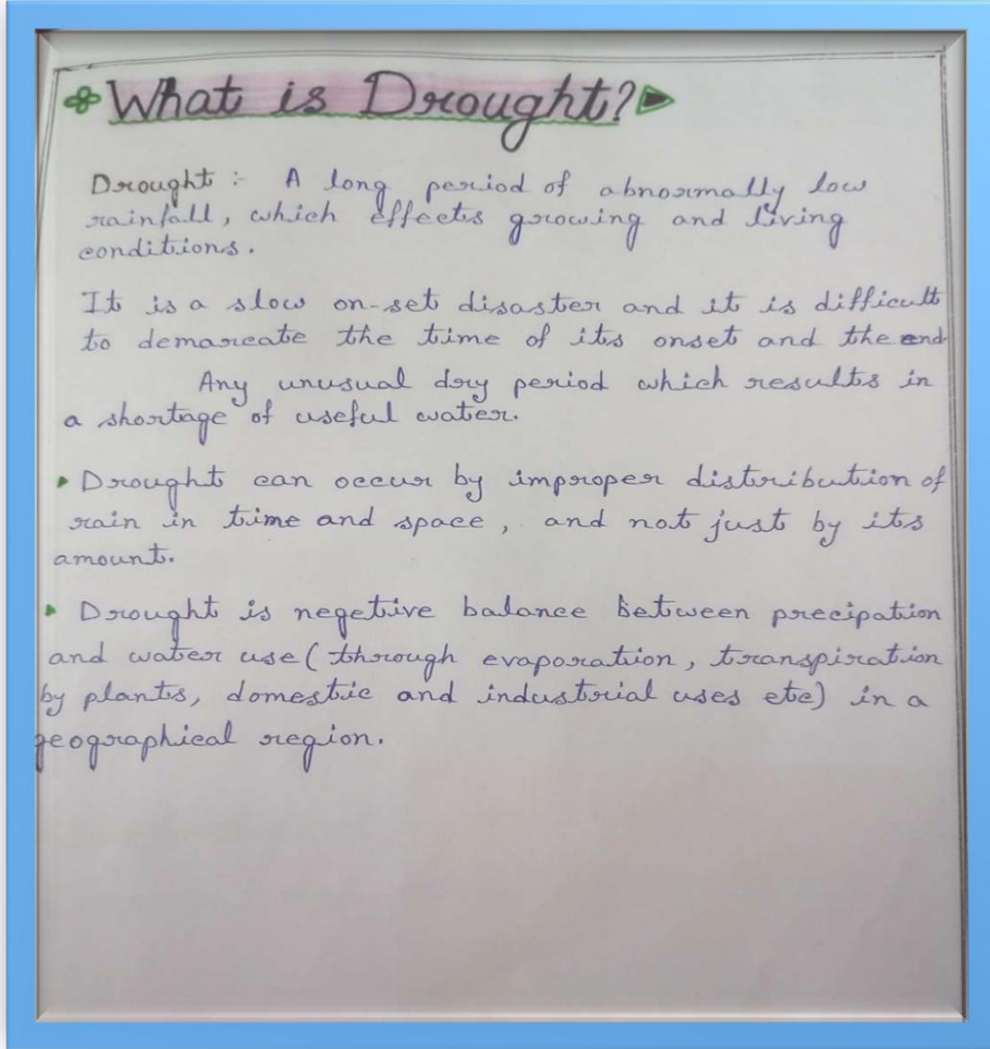 What is Drought?
Drought :- A long period of abnormally low
rainfall, which effects growing and living
conditions.
It is a slow on-set disaster and it is difficult
to demarcate the time of its onset and the end.
Any unusual dry period which results in
a shortage of useful water.
Drought can occur by improper distribution of
rain in time and space, and not just by its
amount.
Drought is negetive balance between precipation
and water use (through evaporation, transpiration
by plants, domestic and industrial uses etc) in a
geographical region.